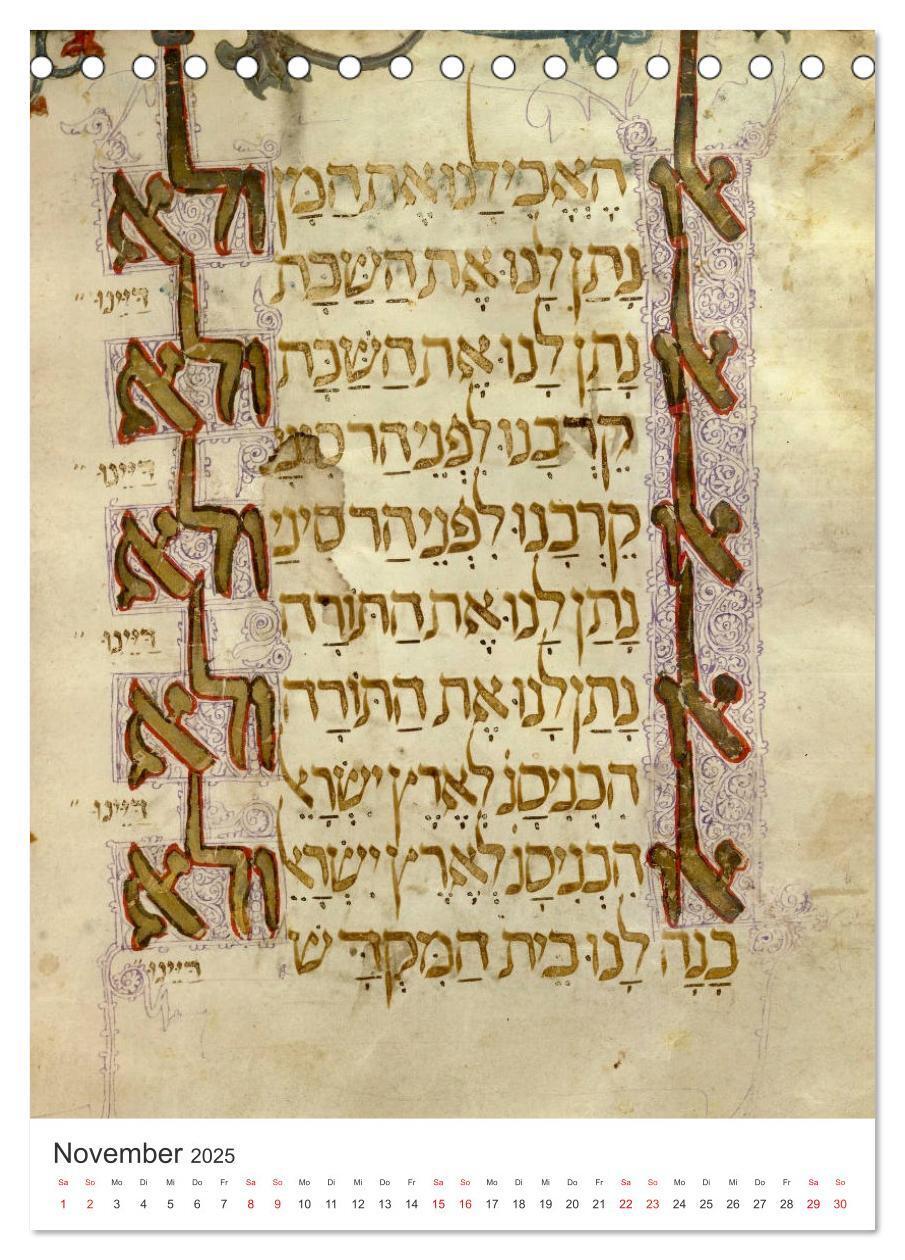 א האכילנו את המן ולא
נתן לנו את השבת דיינו
א נתן לנו את השבת ולא
קרבנו לפני הר סיני דיינו
א קרבנו לפני הר סיני ולא
נתן לנו את התורה דיינו
א נתן לנו את התורה ולא
הכניסנו לארץ ישראל דיינו
א הכניסנו לארץ ישראל ולא
בנה לנו בית המקדש דיינו
November 2025
Sa So Mo Di Mi Do Fr Sa So Mo Di Mi Do Fr Sa So Mo Di Mi Do Fr Sa So Mo Di Mi Do Fr Sa So
1 2 3 4 5 6 7 8 9 10 11 12 13 14 15 16 17 18 19 20 21 22 23 24 25 26 27 28 29 30